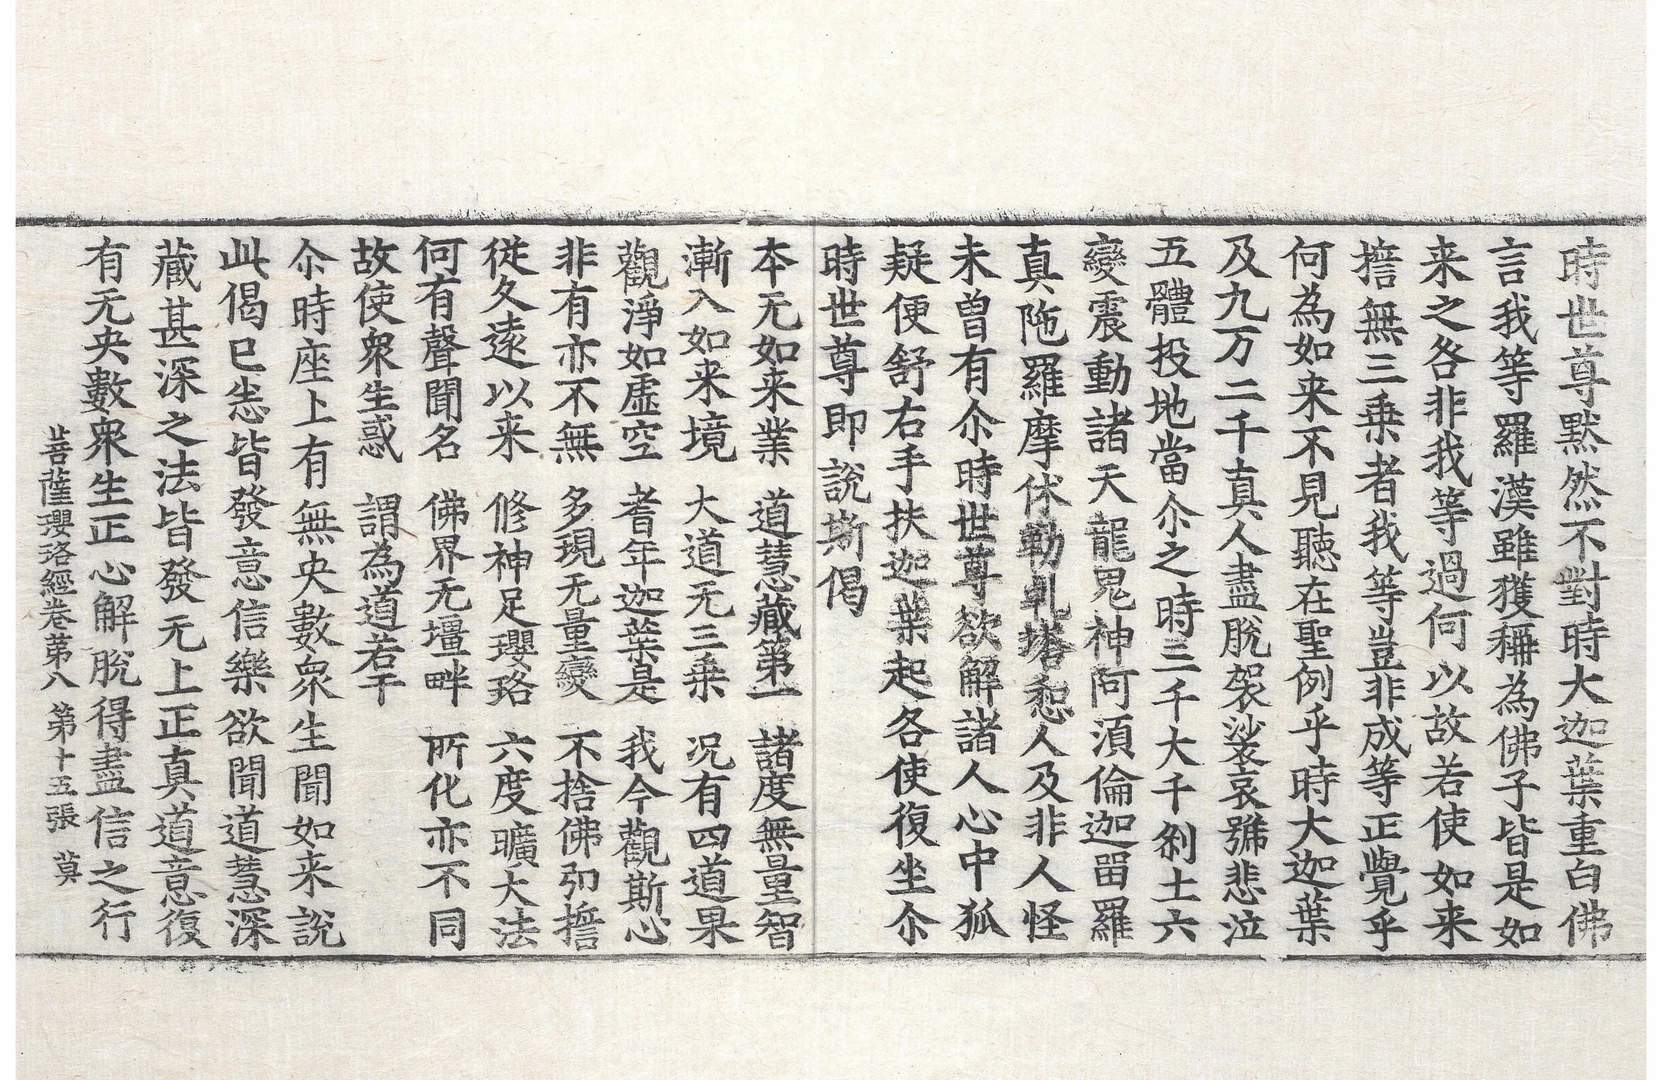 時世尊默然不對時大迦葉重白佛
言我等羅漢雖獲稱為佛子皆是如
来之咎非我等過何以故若使如来
擔無三乗者我等豈非成等正覺乎
何為如来不見聽在聖例乎時大迦葉
及九万二千真人盡脫袈裟哀號悲泣
五體投地當尒之時三千大千剎土六
變震動諸天龍鬼神阿須倫迦留羅
真陁羅摩休勒乹㙮惒人及非人怪
未曽有尒時世尊欲解諸人心中狐
疑便舒右手扶迦葉起各使復坐尒
時世尊即說斯偈
本无如来業　道慧藏第一　諸度無量智
漸入如来境　大道无三乗　况有四道果
觀淨如虛空　耆年迦葉是　我今觀斯心
非有亦不無　多現无量變　不捨佛弘擔
從久遠以来　修神足瓔珞　六度曠大法
何有聲聞名　佛界无壃畔　所化亦不同
故使衆生惑　謂為道若干
尒時座上有無央數衆生聞如来說
此偈已悉皆發意信樂欲聞道慧深
藏甚深之法皆發无上正真道意復
有无央數衆生正心解脫得盡信之行
菩薩瓔珞經卷第八　第十五張　莫